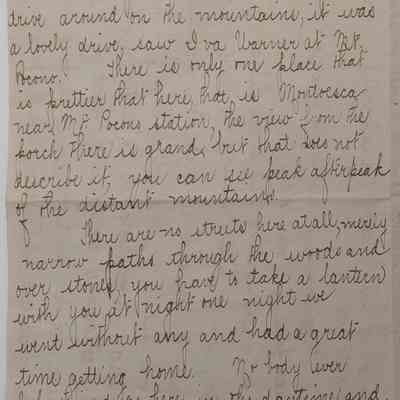 drive around on the mountains, it was
a lovely drive, saw Iva Warner at Mt.
Pocono. There is only one place that
is prettier that here, that is Montvesca
near Mt Pocono station, the view from the
porch there is grand, but that does not
describe it, you can see peak after peak
of the distant mountains.
There are no streets here at all, merely
narrow paths through the woods and
over stones, you have to take a lantern
with you at night one night we
went without any and had a great
time getting home. No body ever
here in the daytime and